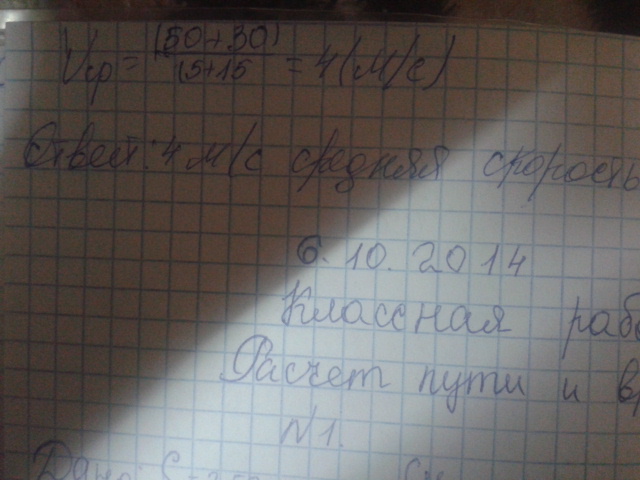 Vср = (50+30) / 5+15 = 4 (м/с)
Ответ: 4 м/с средняя скорость
6.10.2014
Классная раб
Расчет пути и в
N1.
Дано: